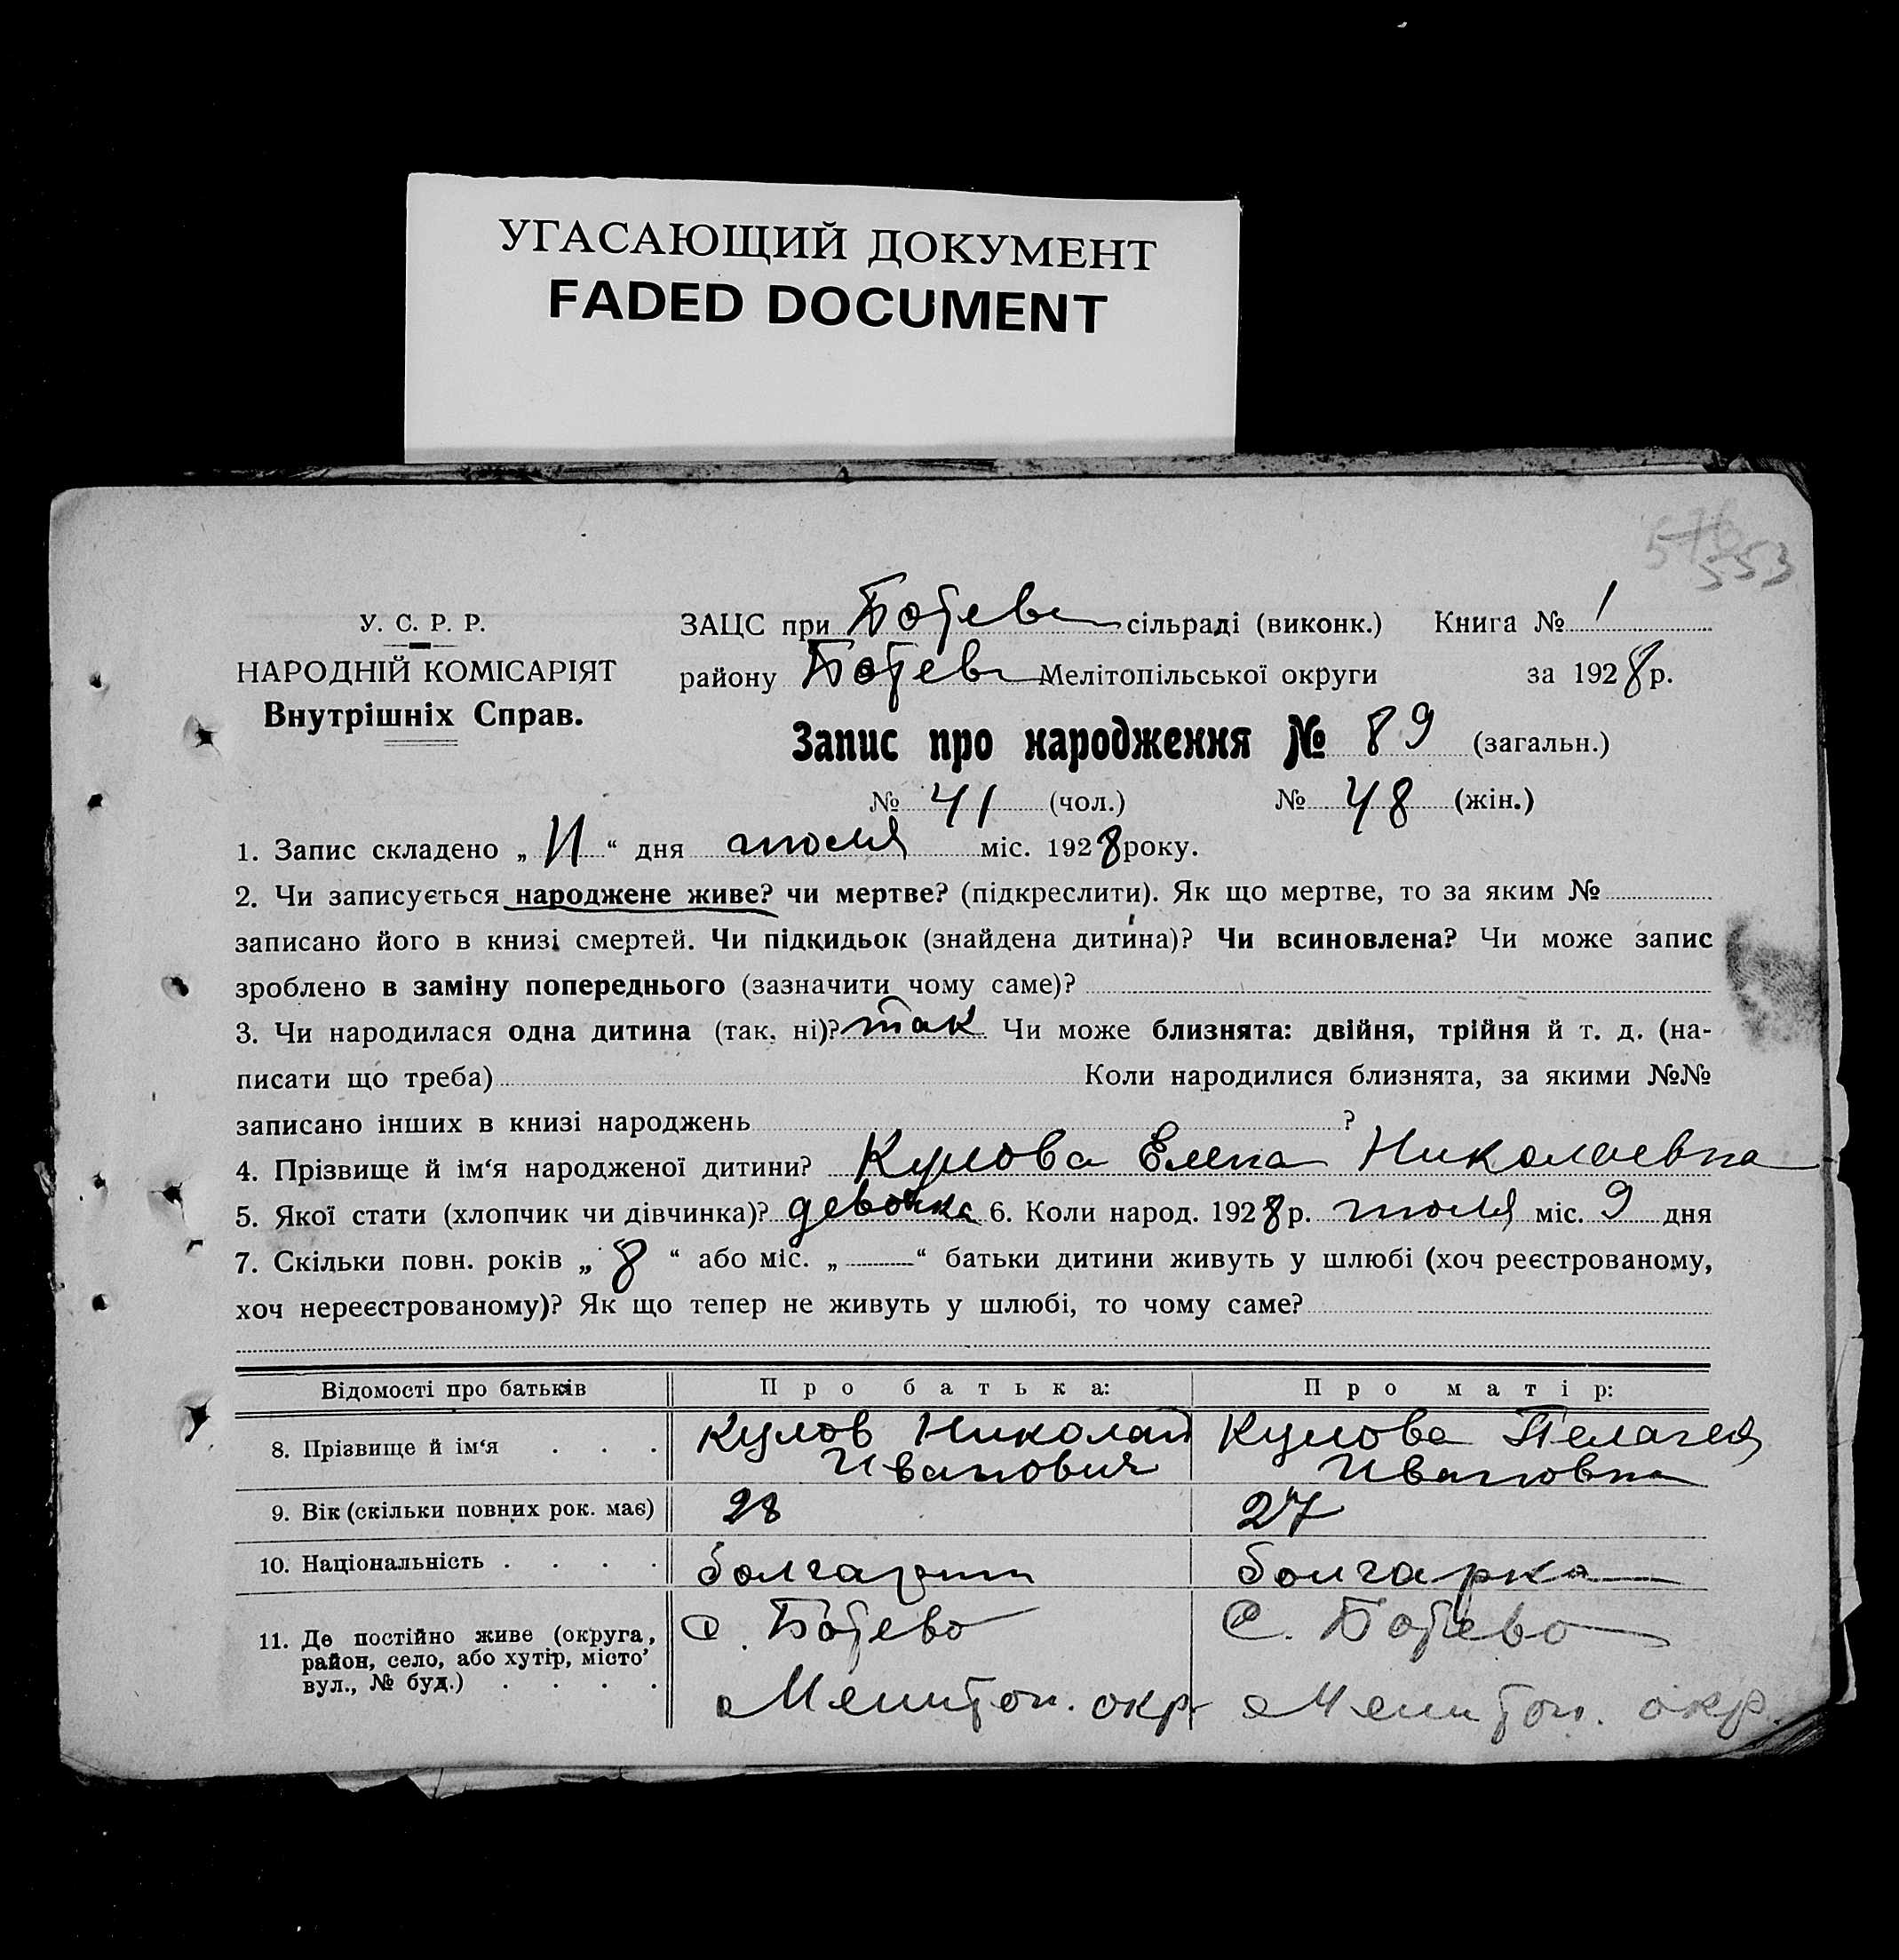 УГАСАЮЩИЙ ДОКУМЕНТ
FADED DOCUMENT
553
У. С. Р. Р.
НАРОДНІЙ КОМІСАРІЯТ
Внутрішніх Справ.
ЗАЦС при Ботев сільраді (виконк.) Книга № 1
району Ботев Мелітопільської округи за 1928 р.
Запис про народження № 89 (загальн.)
№ 41 (чол.) № 48 (жін.)
1. Запис складено „ 11 “ дня июля міс. 1928 року.
2. Чи записується народжене живе? чи мертве? (підкреслити). Як що мертве, то за яким №
записано його в книзі смертей. Чи підкидьок (знайдена дитина)? Чи всиновлена? Чи може запис
зроблено в заміну попереднього (зазначити чому саме)?
3. Чи народилася одна дитина (так, ні)? так Чи може близнята: двійня, трійня й т. д. (на-
писати що треба) Коли народилися близнята, за якими №№
записано інших в книзі народжень ?
4. Прізвище й ім‘я народженої дитини? Кулова Елена Николаевна
5. Якої стати (хлопчик чи дівчинка)? девочка 6. Коли народ. 1928 р. июля міс. 9 дня
7. Скільки повн. років „ 8 “ або міс. „ — “ батьки дитини живуть у шлюбі (хоч реєстрованому,
хоч нереєстрованому)? Як що тепер не живуть у шлюбі, то чому саме?
Відомості про батьків Про батька: Про матір:
8. Прізвище й ім‘я . . . Кулов Николай Иванович Кулова Пелагея Ивановна
9. Вік (скільки повних рок. має) 28 27
10. Національність . . . . болгарин болгарка
11. Де постійно живе (округа, район, село, або хутір, місто, вул., № буд.) . . . . с. Ботево Мелитоп. окр. с. Ботево Мелитоп. окр.